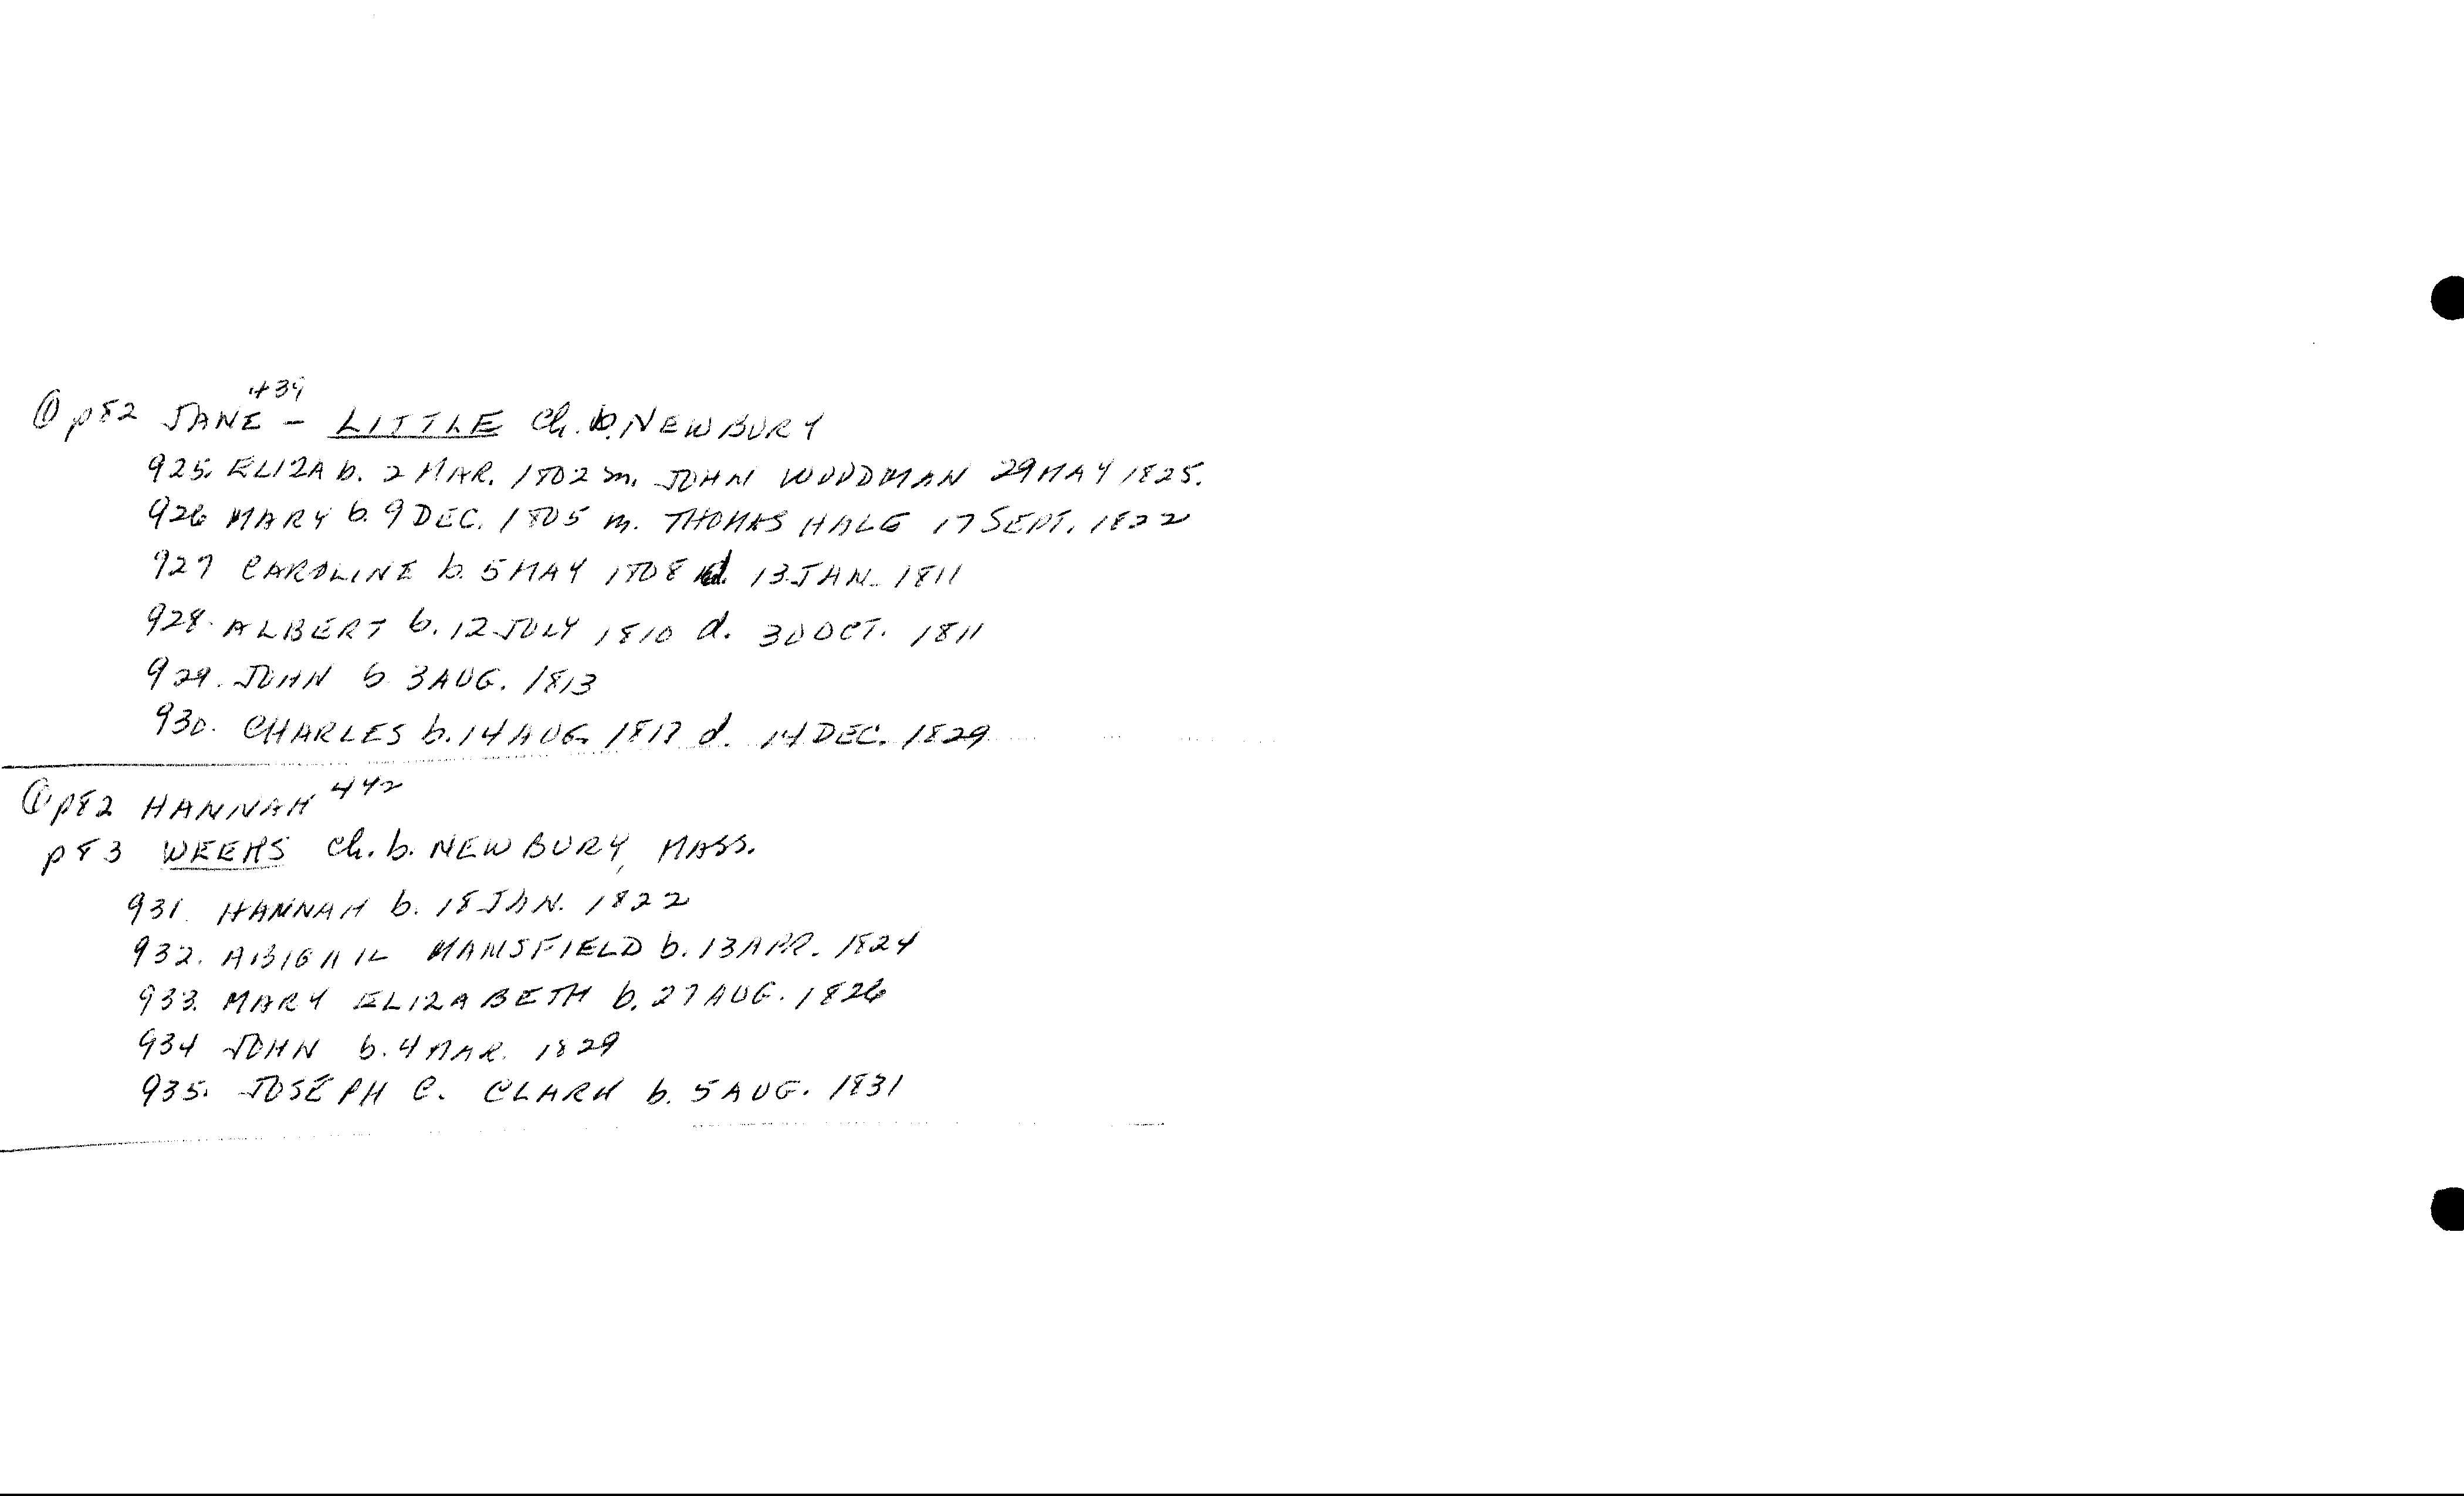 ① p82 JANE 439 - LITTLE Ch. b. NEWBURY
925. ELIZA b. 2 MAR. 1802 m. JOHN WOODMAN 29 MAY 1825.
926 MARY b. 9 DEC. 1805 m. THOMAS HALE 17 SEPT. 1822
927 CAROLINE b. 5 MAY 1808 d. 13 JAN. 1811
928. ALBERT b. 12 JULY 1810 d. 30 OCT. 1811
929. JOHN b 3 AUG. 1813
930. CHARLES b. 14 AUG. 1817 d. 14 DEC. 1829
① p82 HANNAH 442
p83 WEEKS Ch. b. NEWBURY, MASS.
931. HANNAH b. 18 JAN. 1822
932. ABIGAIL MANSFIELD b. 13 APR. 1824
933. MARY ELIZABETH b. 27 AUG. 1826
934 JOHN b. 4 MAR. 1829
935. JOSEPH C. CLARK b. 5 AUG. 1831